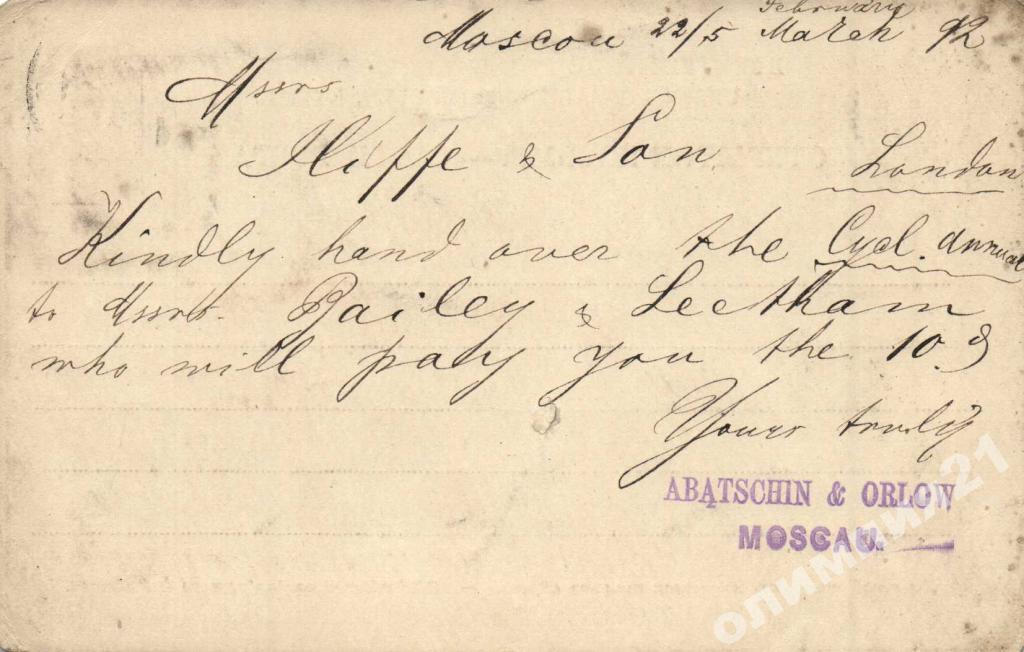 February
Moscou 22/5 March 92
Messrs
Iliffe & Son
London
Kindly hand over the Cycl. annual
to Messrs. Bailey & Leetham
who will pay you the 10.
Yours truly
ABATSCHIN & ORLOW
MOSCAU.
олимпия21